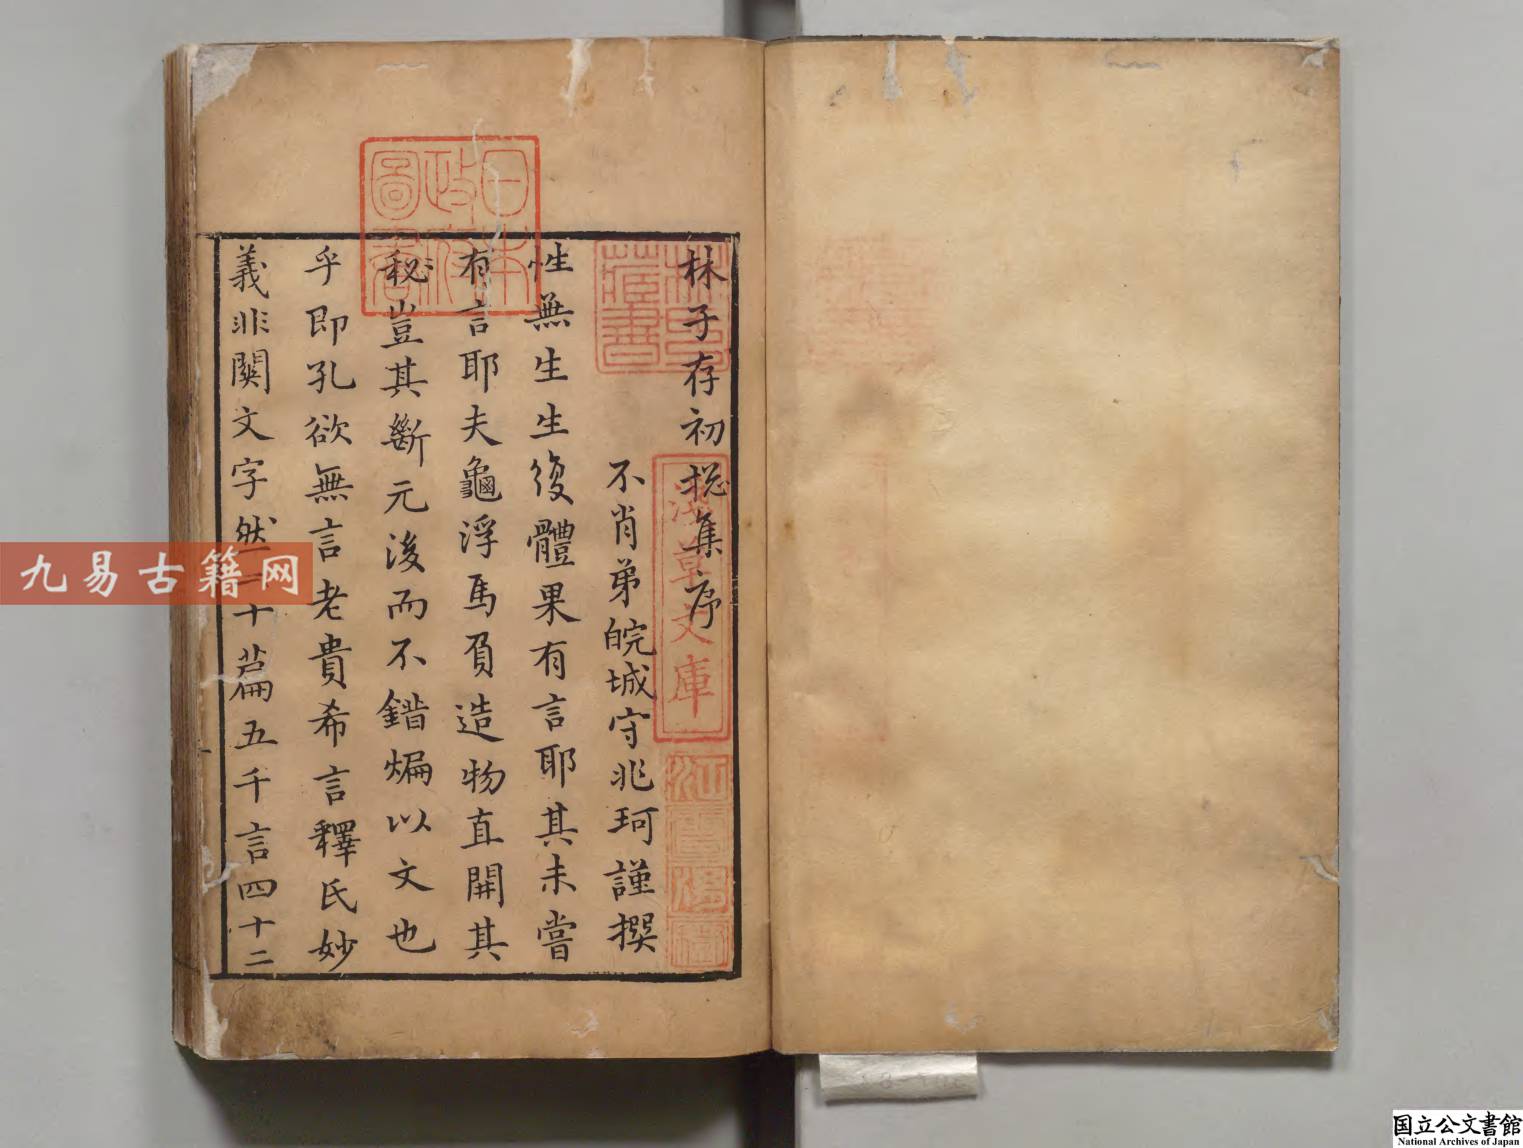 林子存初捴集序
不肖弟皖城守兆珂謹撰
性無生生復體果有言耶其未嘗
有言耶夫龜浮馬負造物直開其
秘豈其斷元後而不錯煸以文也
乎即孔欲無言老貴希言釋氏妙
義非關文字然二十篇五千言四十二
日本政府圖書
林氏藏書
淺草文庫
九易古籍网
国立公文書館
National Archives of Japan